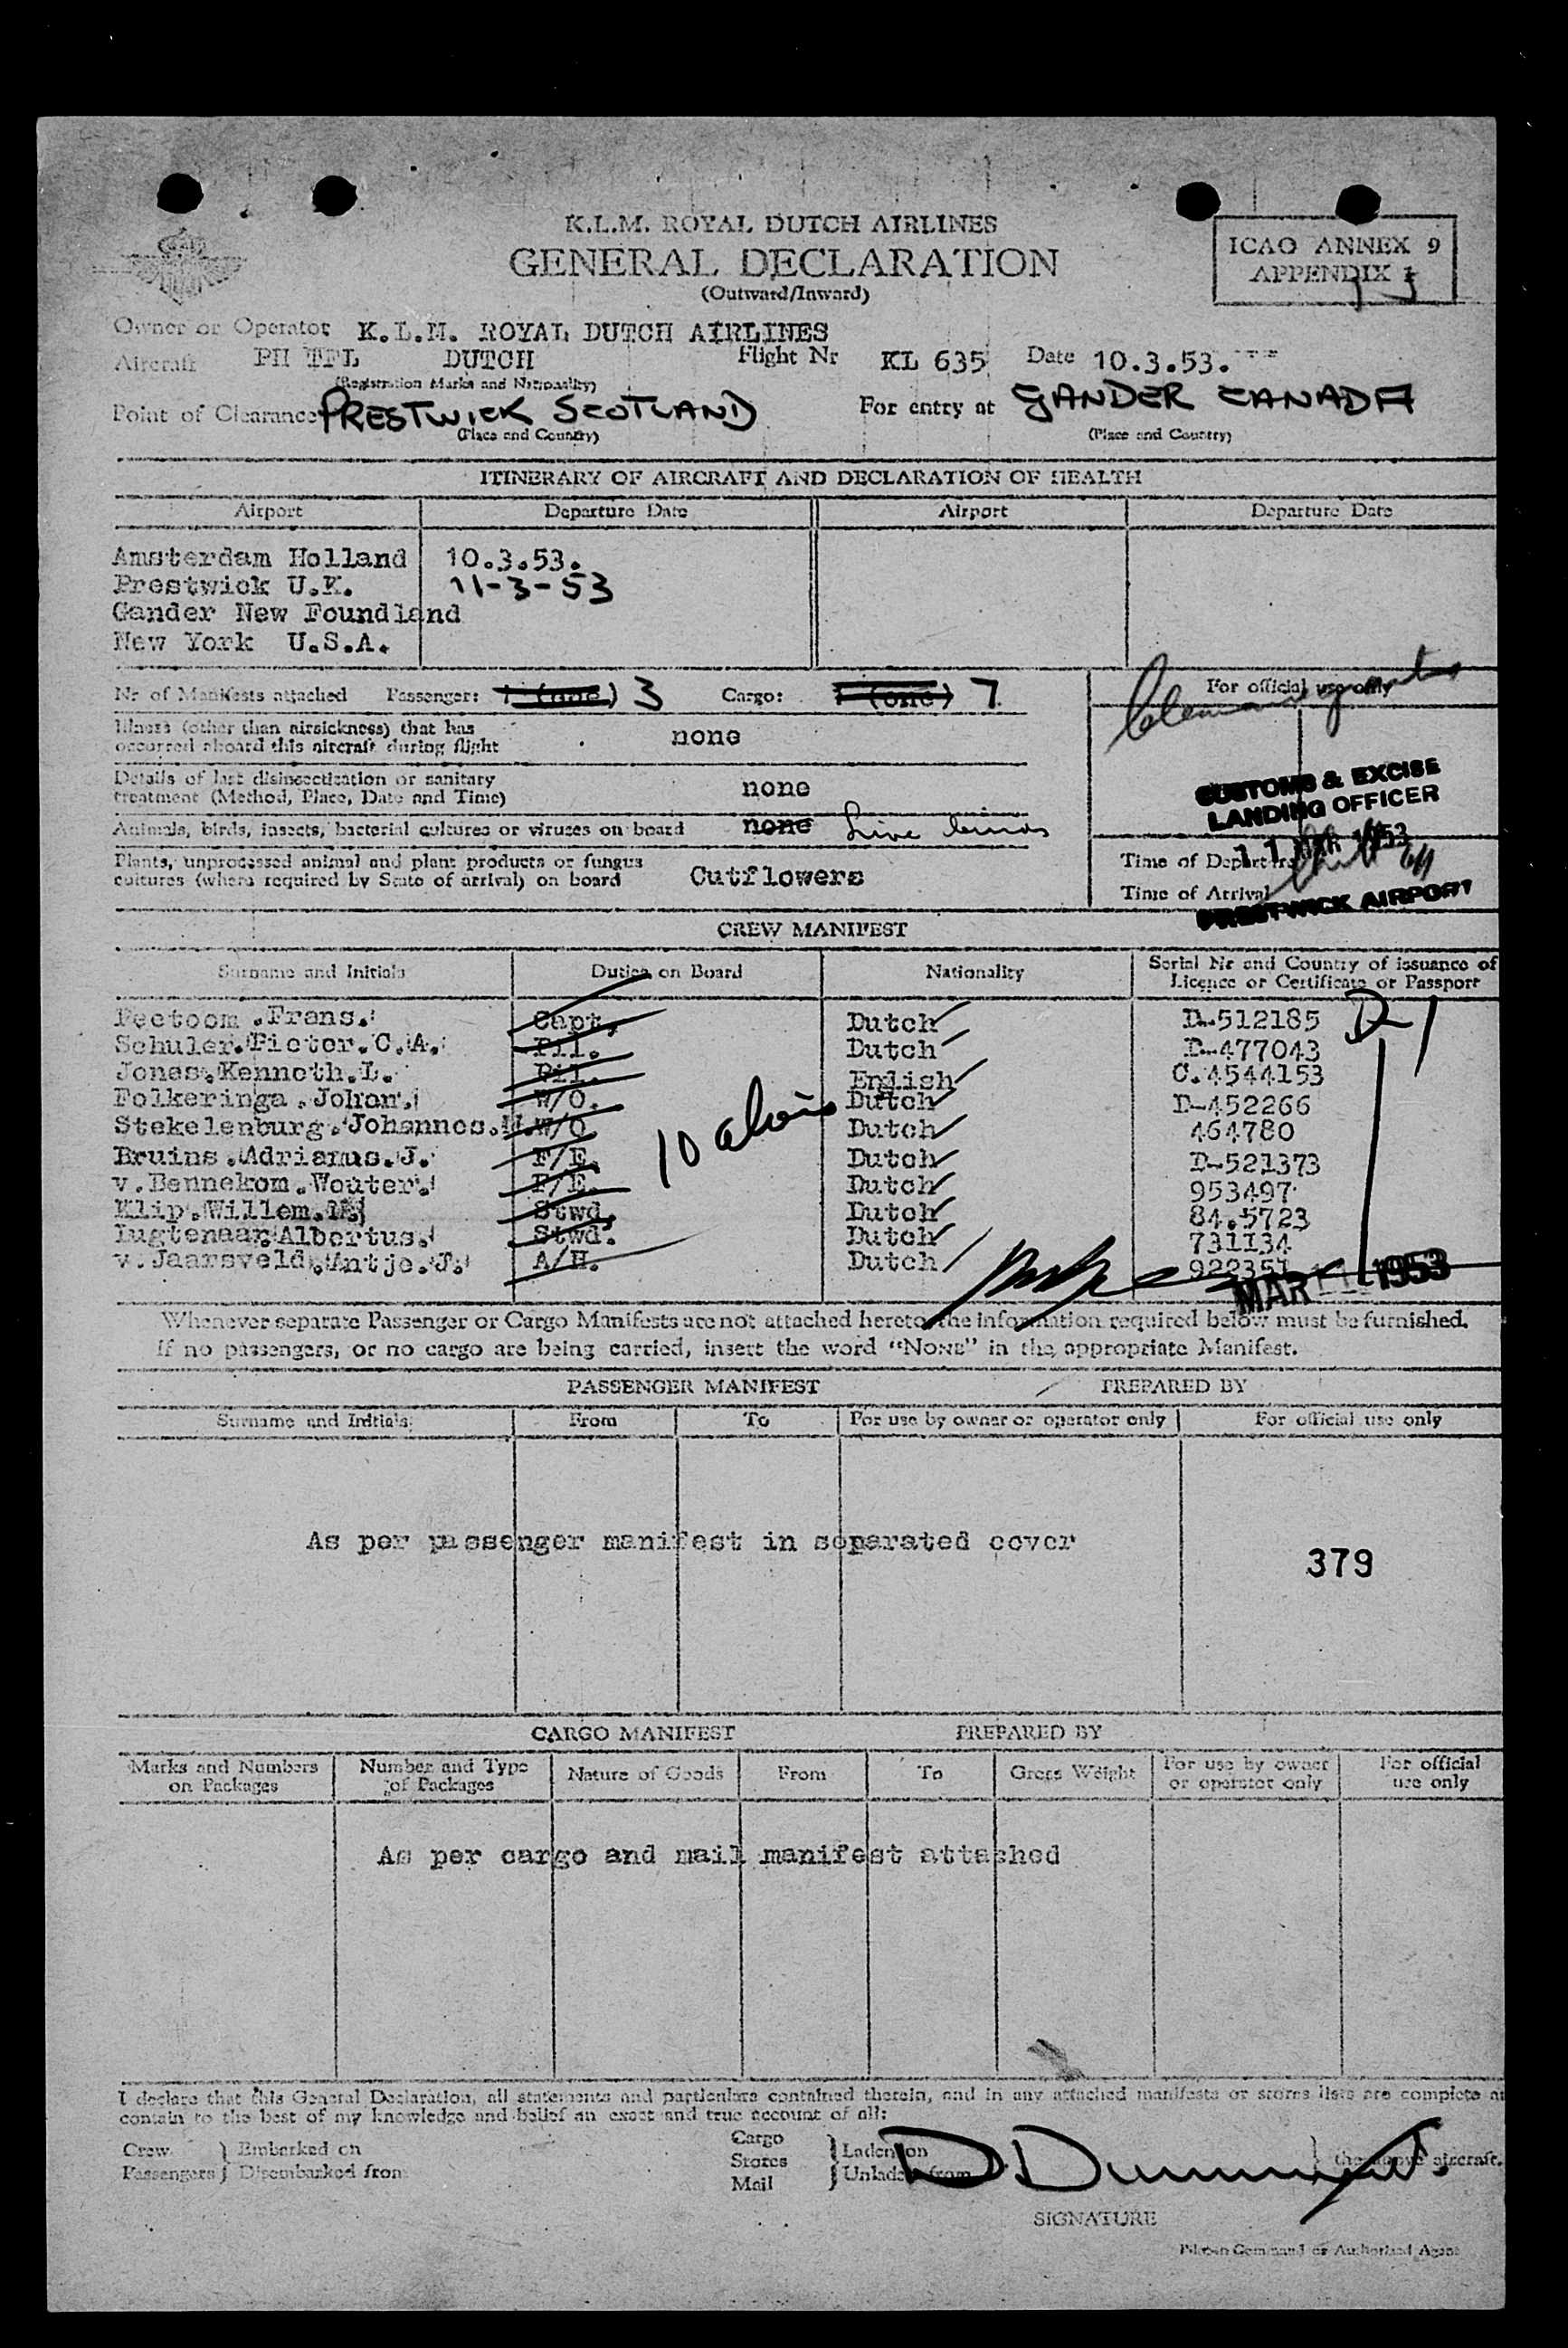 K.L.M. ROYAL DUTCH AIRLINES
GENERAL DECLARATION
(Outward/Inward)
ICAO ANNEX 9
APPENDIX 1
Owner or Operator K.L.M. ROYAL DUTCH AIRLINES
Aircraft PH TPL DUTCH Flight Nr KL 635 Date 10.3.53.
(Registration Marks and Nationality)
Point of Clearance PRESTWICK SCOTLAND For entry at GANDER CANADA
(Place and Country) (Place and Country)
ITINERARY OF AIRCRAFT AND DECLARATION OF HEALTH
Airport Departure Date Airport Departure Date
Amsterdam Holland 10.3.53.
Prestwick U.K. 11-3-53
Gander New Foundland
New York U.S.A.
Nr of Manifests attached Passenger: 1 (one) 3 Cargo: 1 (one) 7
For official use only
Illness (other than airsickness) that has
occurred aboard this aircraft during flight none
Details of last disinsectization or sanitary
treatment (Method, Place, Date and Time) none
CUSTOMS & EXCISE
LANDING OFFICER
11 MAR 1953
PRESTWICK AIRPORT
Animals, birds, insects, bacterial cultures or viruses on board none Live birds
Plants, unprocessed animal and plant products or fungus
cultures (where required by State of arrival) on board Cutflowers
Time of Departure
Time of Arrival
CREW MANIFEST
Surname and Initials Duties on Board Nationality Serial Nr and Country of issuance of
Licence or Certificate or Passport
.Frans. Capt. Dutch D-512185
Schuler.Pieter.C.A. Pil. Dutch D-477043
Jones.Kenneth.L. Pil. English C.4544153
Folkeringa.Johan. W/O. Dutch D-452266
Stekelenburg.Johannes. W/O Dutch 464780
Bruins.Adrianus.J. F/E. Dutch D-521373
v.Bennekom.Wouter. F/E. Dutch 953497
Klip.Willem. Stwd. Dutch 84.5723
Lugtenaar.Albertus. Stwd. Dutch 731134
v.Jaarsveld.Antje.J. A/H. Dutch 922351
10
MAR 11 1953
Whenever separate Passenger or Cargo Manifests are not attached hereto, the information required below must be furnished.
If no passengers, or no cargo are being carried, insert the word "NONE" in the appropriate Manifest.
PASSENGER MANIFEST PREPARED BY
Surname and Initials From To For use by owner or operator only For official use only
As per passenger manifest in separated cover
379
CARGO MANIFEST PREPARED BY
Marks and Numbers
on Packages Number and Type
of Packages Nature of Goods From To Gross Weight For use by owner
or operator only For official
use only
As per cargo and mail manifest attached
I declare that this General Declaration, all statements and particulars contained therein, and in any attached manifests or stores lists are complete
contain to the best of my knowledge and belief an exact and true account of all:
Crew Embarked on Cargo Laden on
Passengers Disembarked from Stores Unladen from the above aircraft.
Mail
SIGNATURE
Pilot-in-Command or Authorised Agent